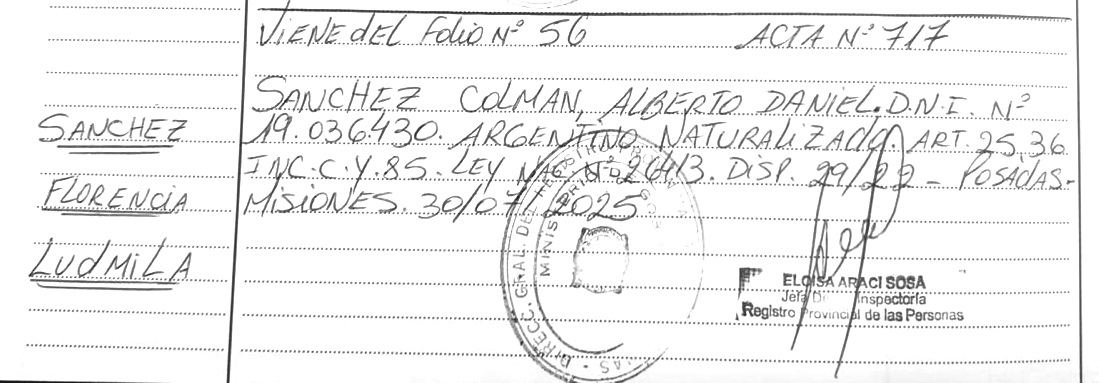 VIENE del Folio Nº 56 ACTA Nº 717
SANCHEZ COLMAN, ALBERTO DANIEL. D.N.I. Nº
19.036.430. ARGENTINO NATURALIZADO. ART. 25.36
INC. C. Y. 85. LEY NAC. Nº 26413. DISP. 29/22 - POSADAS-
MISIONES. 30/07/2025
SANCHEZ
FLORENCIA
LUdMiLA
DIRECC. GRAL. DE
MINISTERIO DE GOB
ELOISA ARACI SOSA
Jefa Inspectoría
Registro Provincial de las Personas